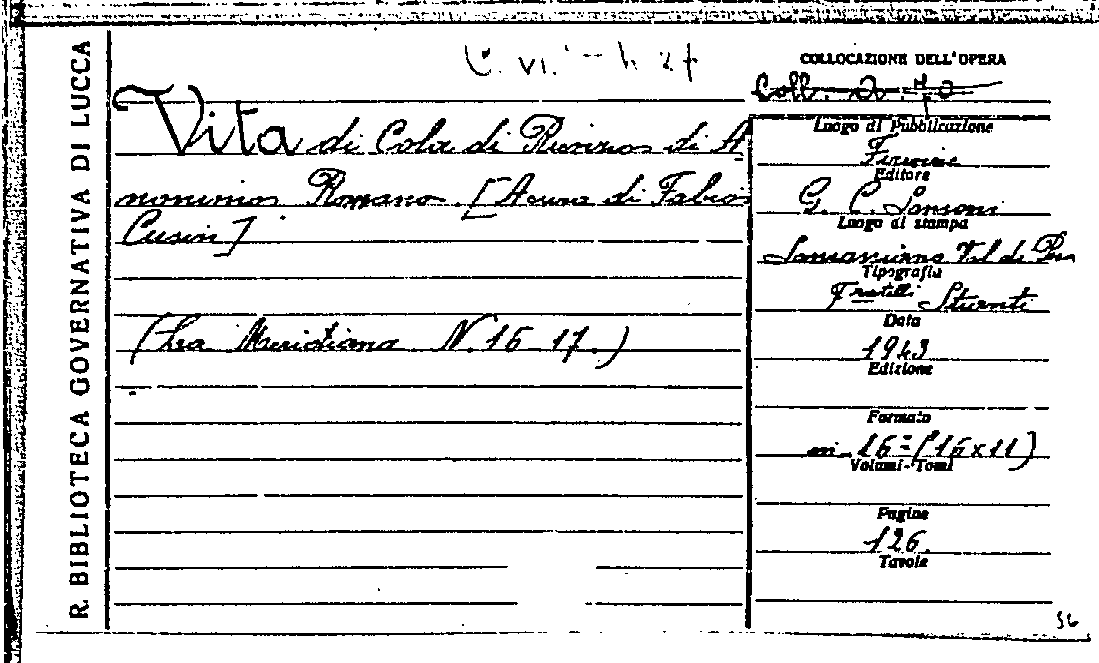 R. BIBLIOTECA GOVERNATIVA DI LUCCA
C. VI. - h. 27
Vita di Cola di Rienzo di A
nonimo Romano. [A cura di Fabio
Cusin]
(La Meridiana N. 16-17.)
COLLOCAZIONE DELL'OPERA
Coll. 2.
Luogo di Pubblicazione
Firenze
Editore
G. C. Sansoni
Luogo di stampa
Sancasciano Val di Pesa
Tipografia
Fratelli Stianti
Data
1943
Edizione
Formato
in-16=[16x11]
Volumi-Tomi
Pagine
126.
Tavole
56